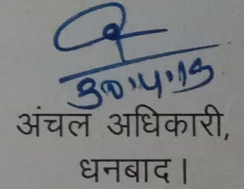 30.4.15
अंचल अधिकारी,
धनबाद।